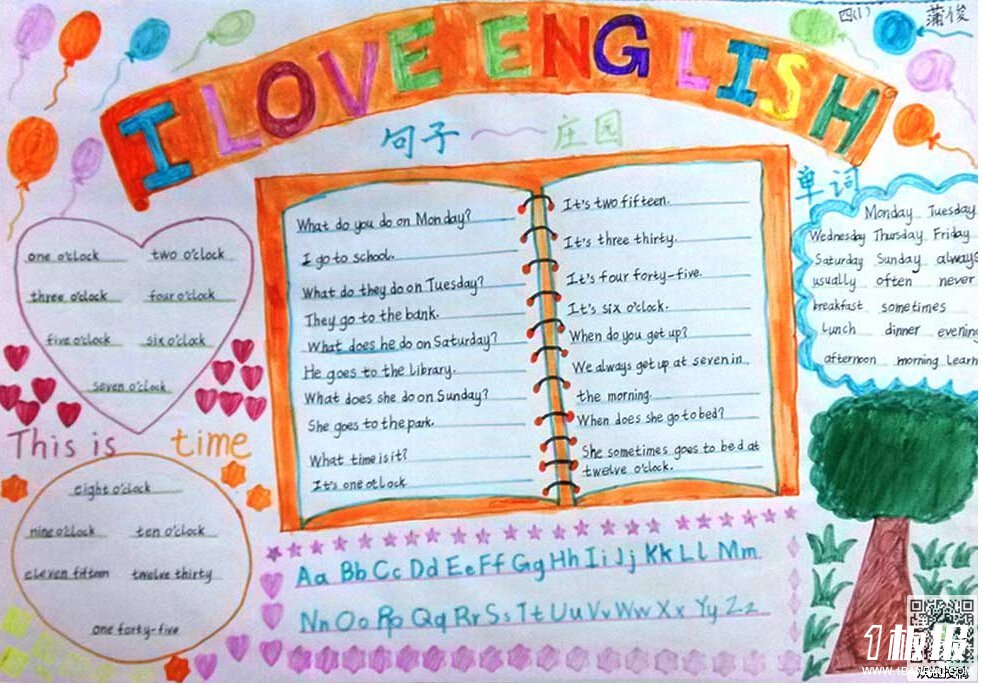 四(1)
蒲俊
I LOVE ENGLISH
句子 庄园
What do you do on Monday?
I go to school.
What do they do on Tuesday?
They go to the bank.
What does he do on Saturday?
He goes to the Library.
What does she do on Sunday?
She goes to the park.
What time is it?
It's one o'clock
It's two fifteen.
It's three thirty.
It's four forty-five.
It's six o'clock.
When do you get up?
We always get up at seven in
the morning.
When does she go to bed?
She sometimes goes to bed at
twelve o'clock.
单词
Monday Tuesday
Wednesday Thursday Friday
Saturday Sunday always
usually often never
breakfast sometimes
lunch dinner evening
afternoon morning learn
one o'clock two o'clock
three o'clock four o'clock
five o'clock six o'clock
seven o'clock
This is time
eight o'clock
nine o'clock ten o'clock
eleven fifteen twelve thirty
one forty-five
Aa Bb Cc Dd Ee Ff Gg Hh Ii Jj Kk Ll Mm
Nn Oo Pp Qq Rr Ss Tt Uu Vv Ww Xx Yy Zz
1板报
欢迎投稿